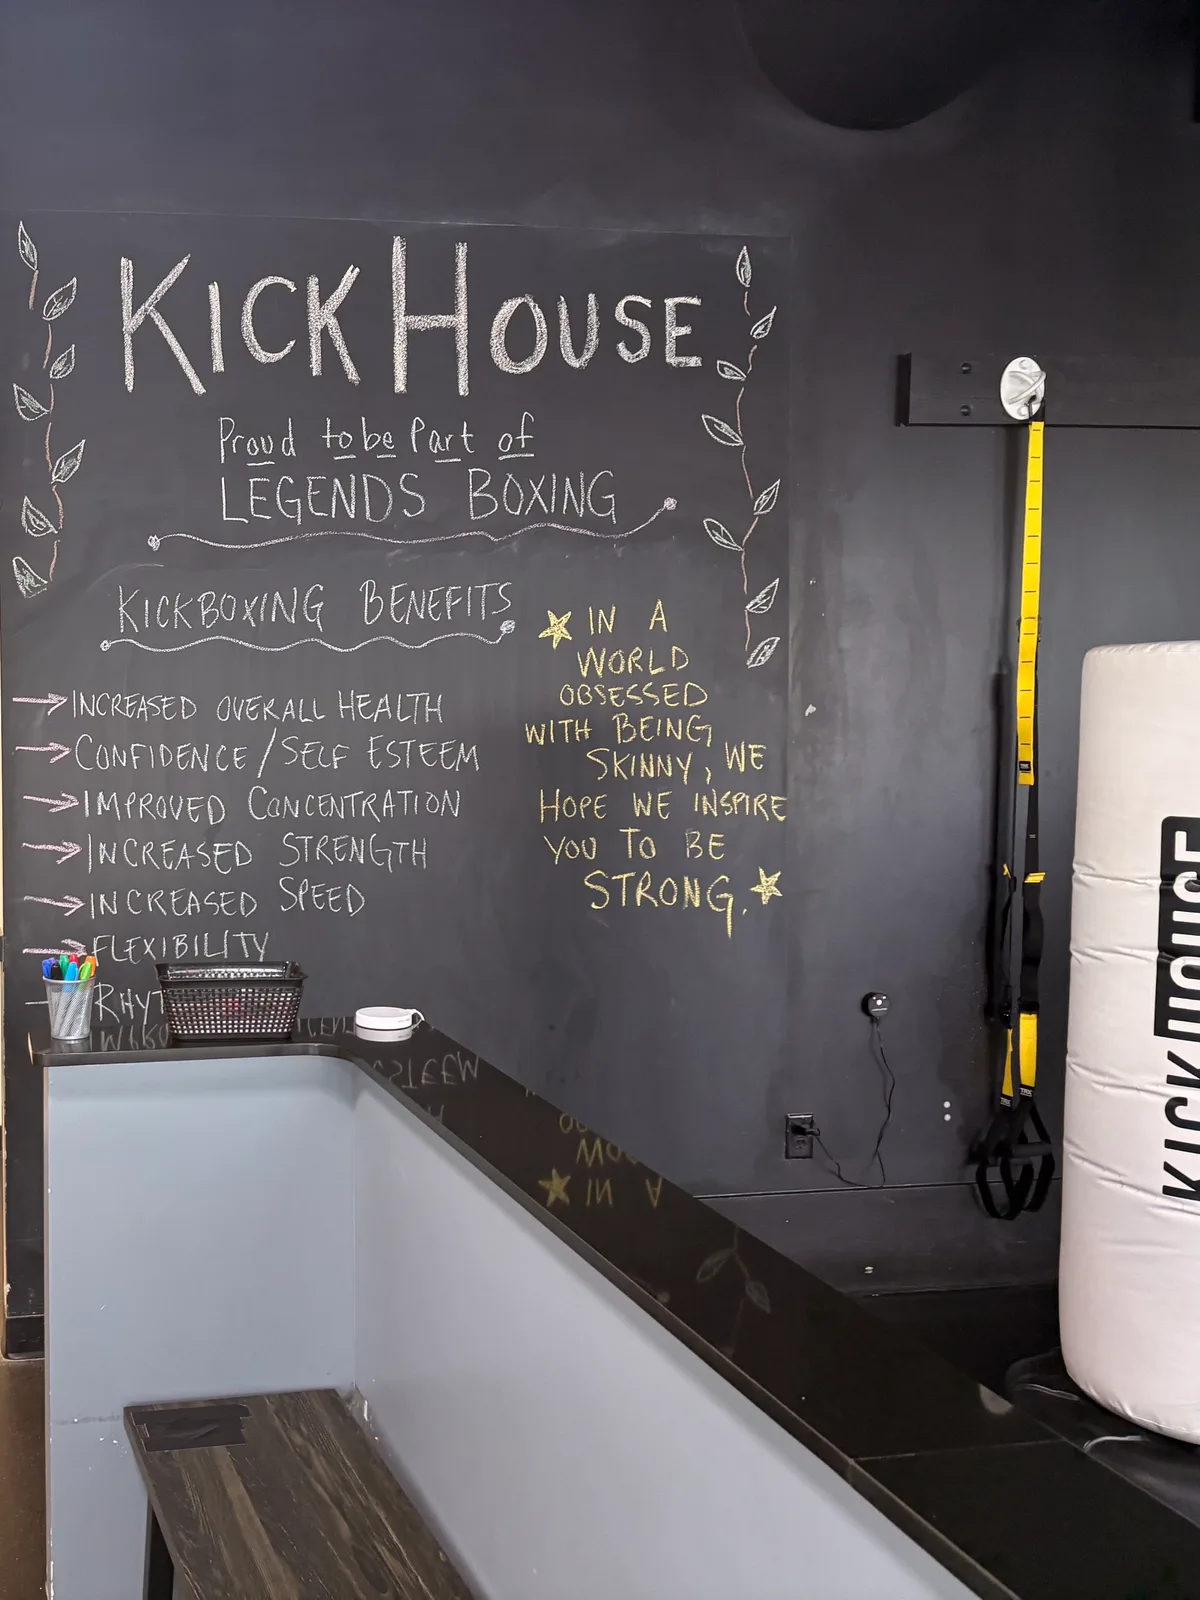 KICKHOUSE
Proud to be Part of
LEGENDS BOXING
KICKBOXING BENEFITS
→ INCREASED OVERALL HEALTH
→ CONFIDENCE/SELF ESTEEM
→ IMPROVED CONCENTRATION
→ INCREASED STRENGTH
→ INCREASED SPEED
→ FLEXIBILITY
IN A
WORLD
OBSESSED
WITH BEING
SKINNY, WE
HOPE WE INSPIRE
YOU TO BE
STRONG.
KICKHOUSE